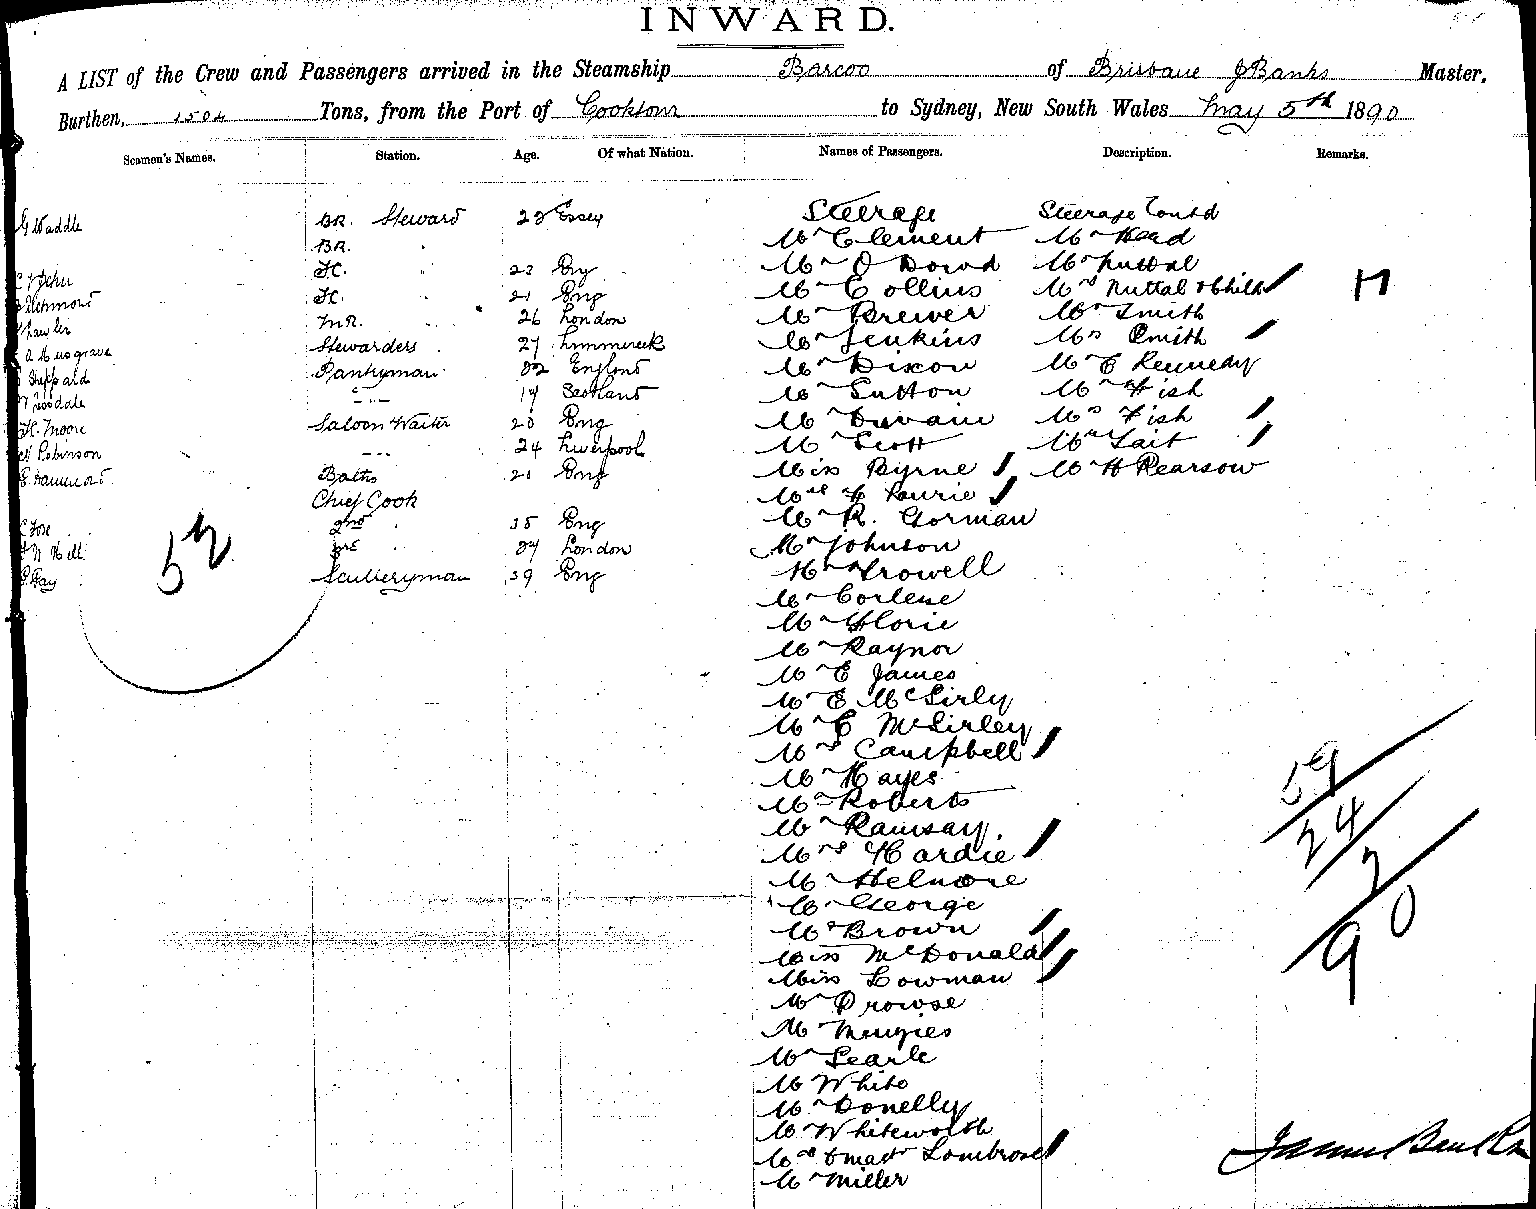 INWARD.
A LIST of the Crew and Passengers arrived in the Steamship Barcoo of Brisbane J Banks Master,
Burthen, 1504 Tons, from the Port of Cooktown to Sydney, New South Wales May 5th 1890
Seamen's Names. Station. Age. Of what Nation. Names of Passengers. Description. Remarks.
G Waddle BR. Steward 22 Essex Steerage Steerage Contd
BR. Mr Clement Mr Head
Fr. 22 Eng Mr O Dowd Mr Nuttal
Fr. 21 Eng Mr Collins Mrs Nuttal & Child
M.R. 26 London Mr Brewer Mr Smith
A Musgrave Stewardess 27 Limmerick Mr Jenkins Mrs Smith
Sheppard Pantryman 22 England Mr Dixon Mr E Kennedy
19 Scotland Mr Sutton Mr Fish
H. Moore Saloon Waiter 20 Eng Mr Duvain Mrs Fish
Robinson 24 Liverpool Mr Scott Mr Tait
Baths 21 Eng Miss Byrne Mr H Pearson
Chief Cook Mrs F Lawrie
C Fox 2nd 35 Eng Mr R. Gorman
Hill 3rd 24 London Mr Johnson
Fay Sculleryman 39 Eng Mr Trowell
52
Mr Corlene
Mr Glorie
Mr Raynor
Mr E James
Mr E McSirly
Mr C McSirley
Mrs Campbell
Mr Hayes
Mr Roberts
Mr Ramsay.
Mrs Hardie
Mr Helmore
Mr George
Mrs Brown
Miss McDonald
Miss Lowman
Mr Prowse
Mr Menzies
Mr Searle
Mr White
Mr Donelly
Mr Whiteworth
Mrs & mastr Lombrose
Mr Miller
59
24
7
90
James Banks